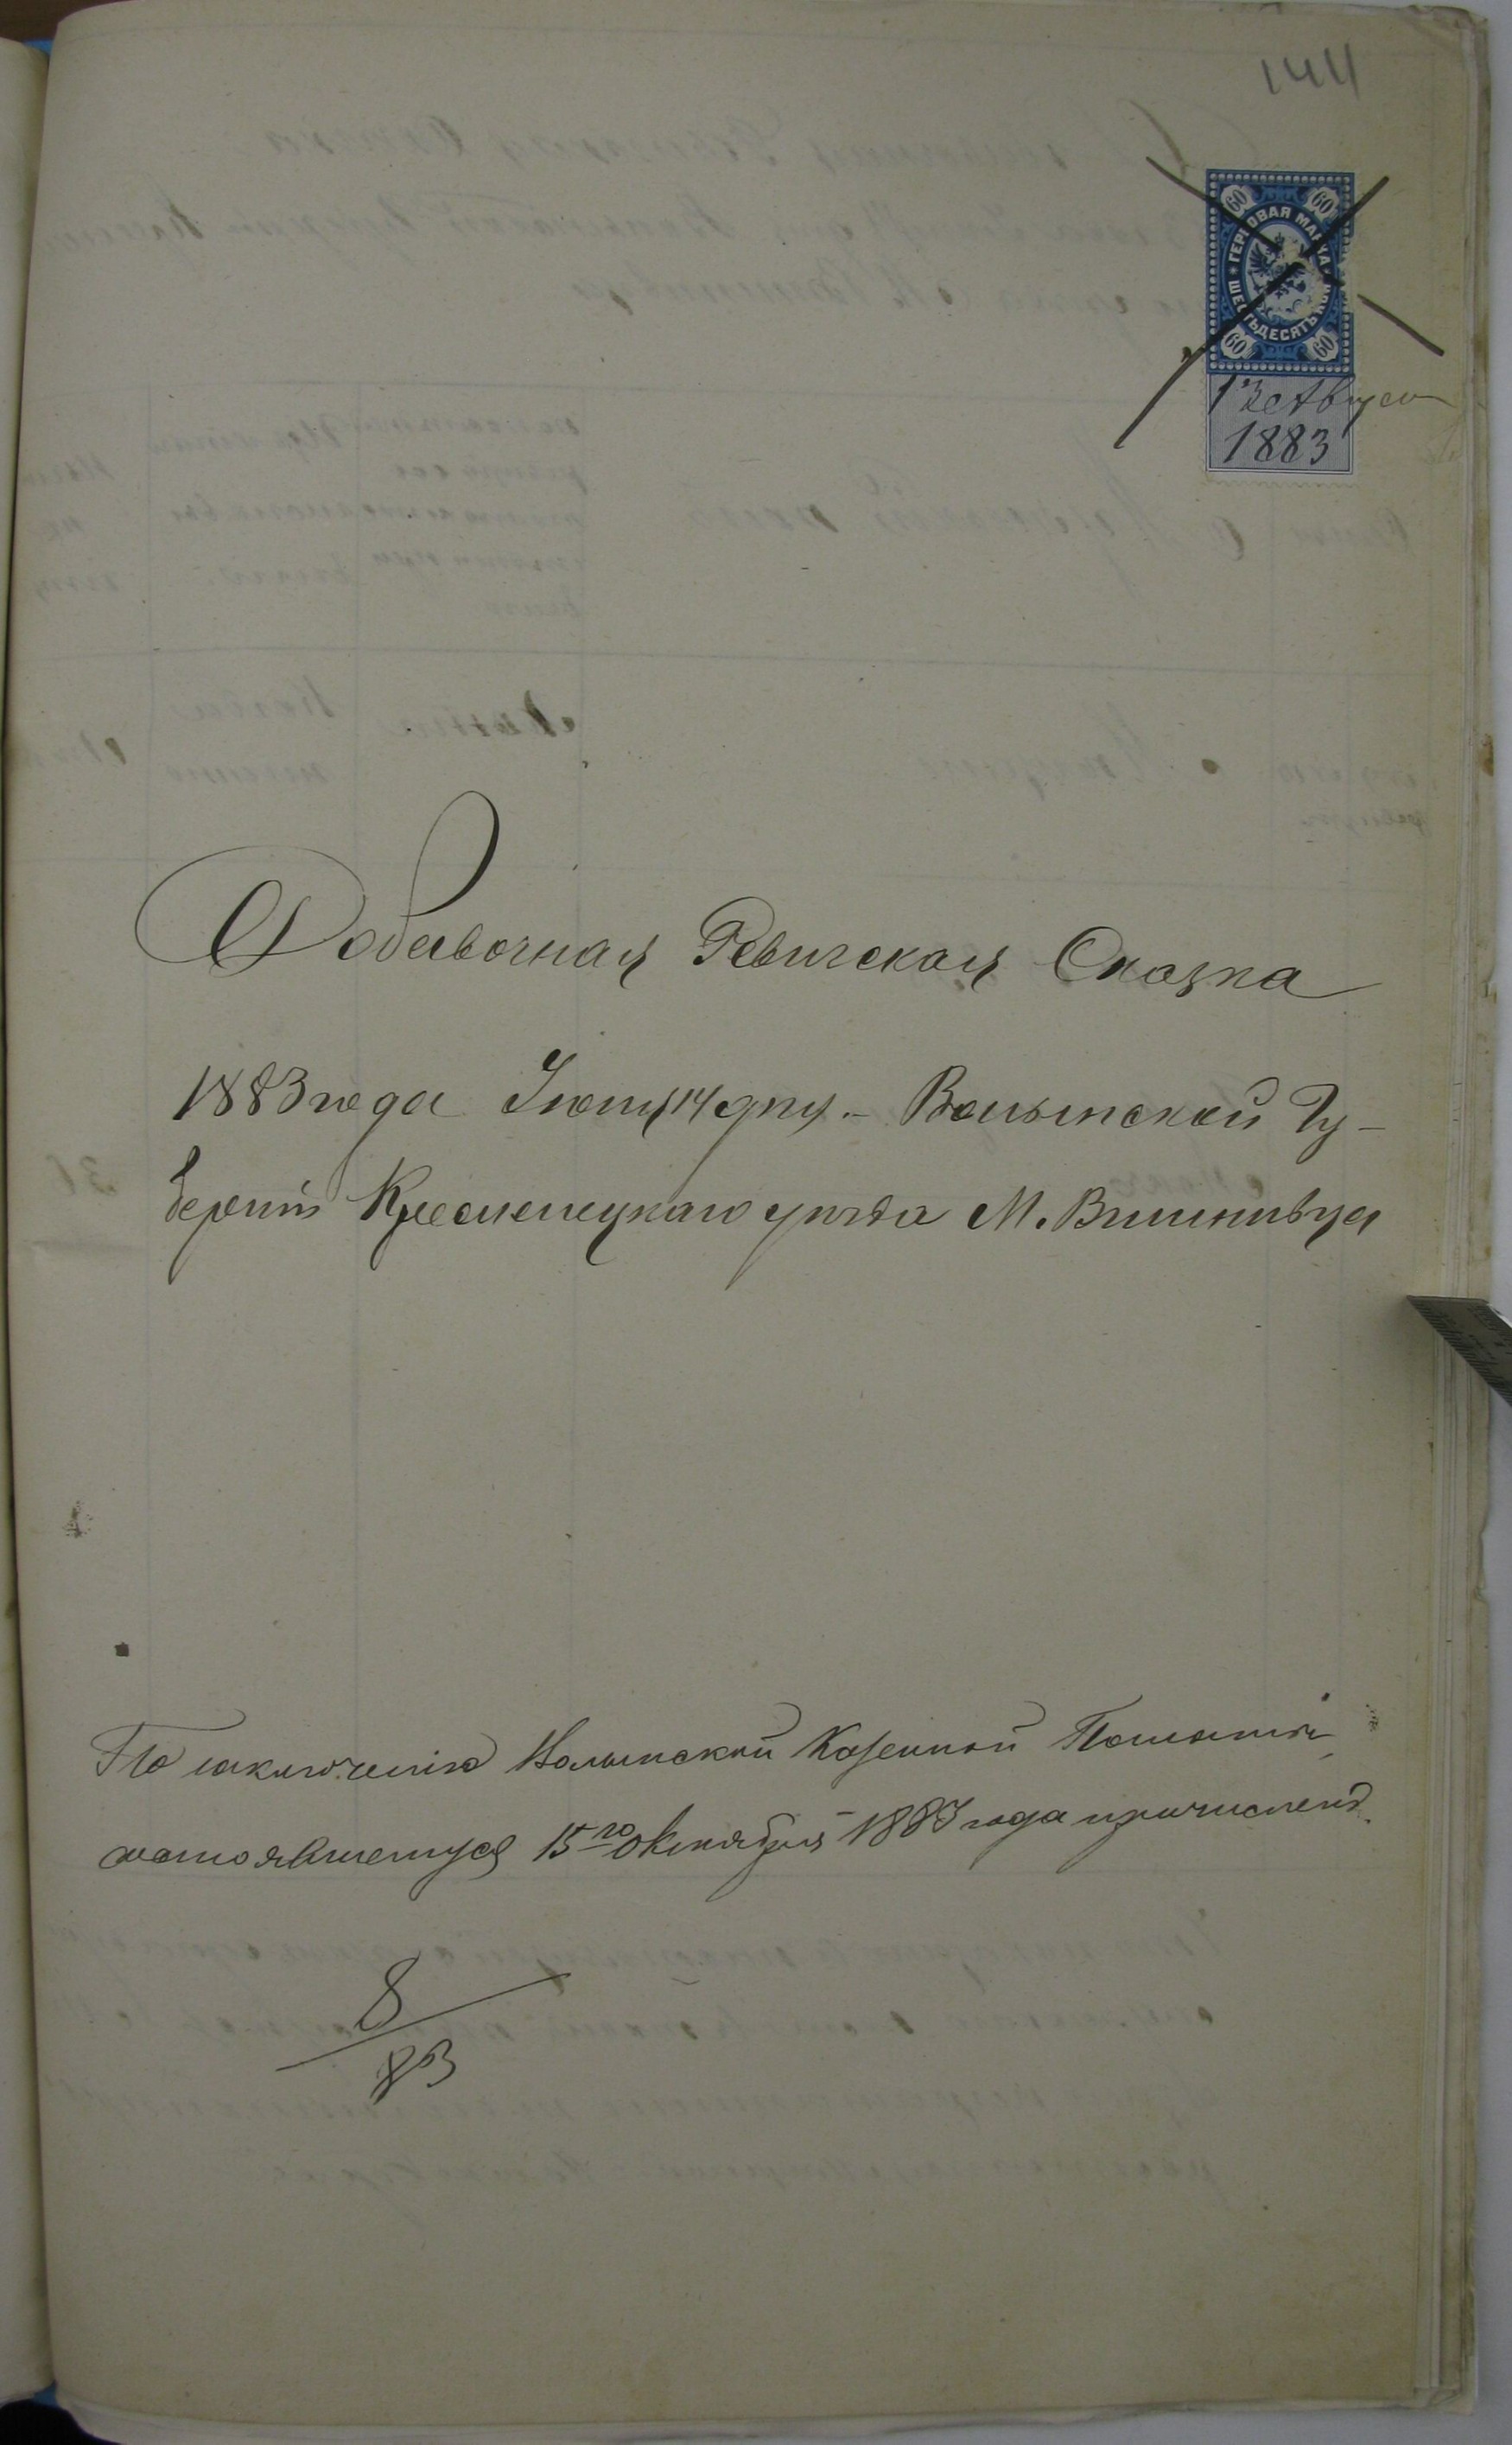 144
60 60
ГЕРБОВАЯ МАРКА
ШЕСТЬДЕСЯТЪ КОП
60 60
13 Август
1883
Добавочная Ревизская Сказка
1883 года Іюня 14 дня. – Волынской Гу-
берніи Кременецкаго уѣзда М. Вишнивца
По заключенію Волынской Казенной Палаты
состоявшемуся 15го Октября 1883 года причисленъ
8
83